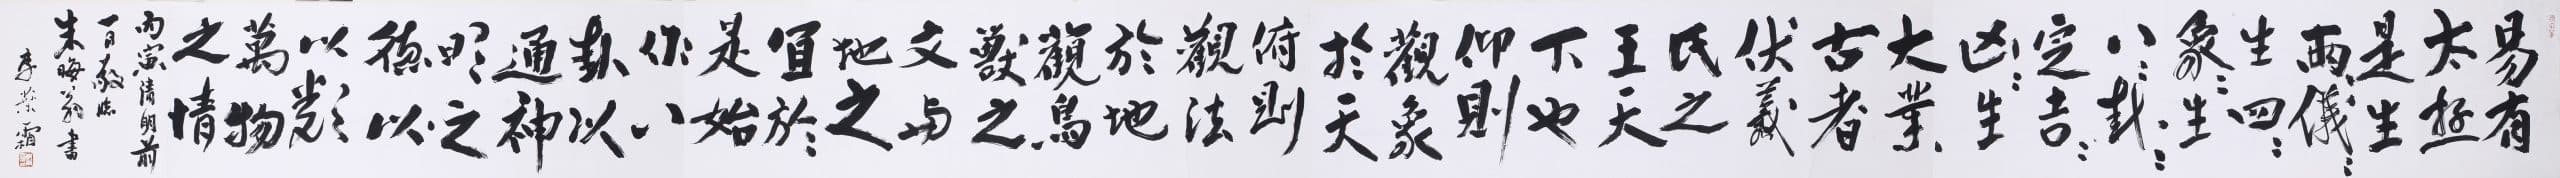 易有
太極
是生
兩〻儀〻
生四〻
象〻生
八〻卦〻
定吉〻
凶〻生
大業
古者
伏羲
氏之
王天
下也
仰則
觀象
於天
俯則
觀法
於地
觀鳥
獸之
文与
地之
宜於〻
是始
作八
卦以
通神
明之
德以
以類
萬物
之情
丙寅清明前
一日敬臨
朱晦翁書
李葉霜